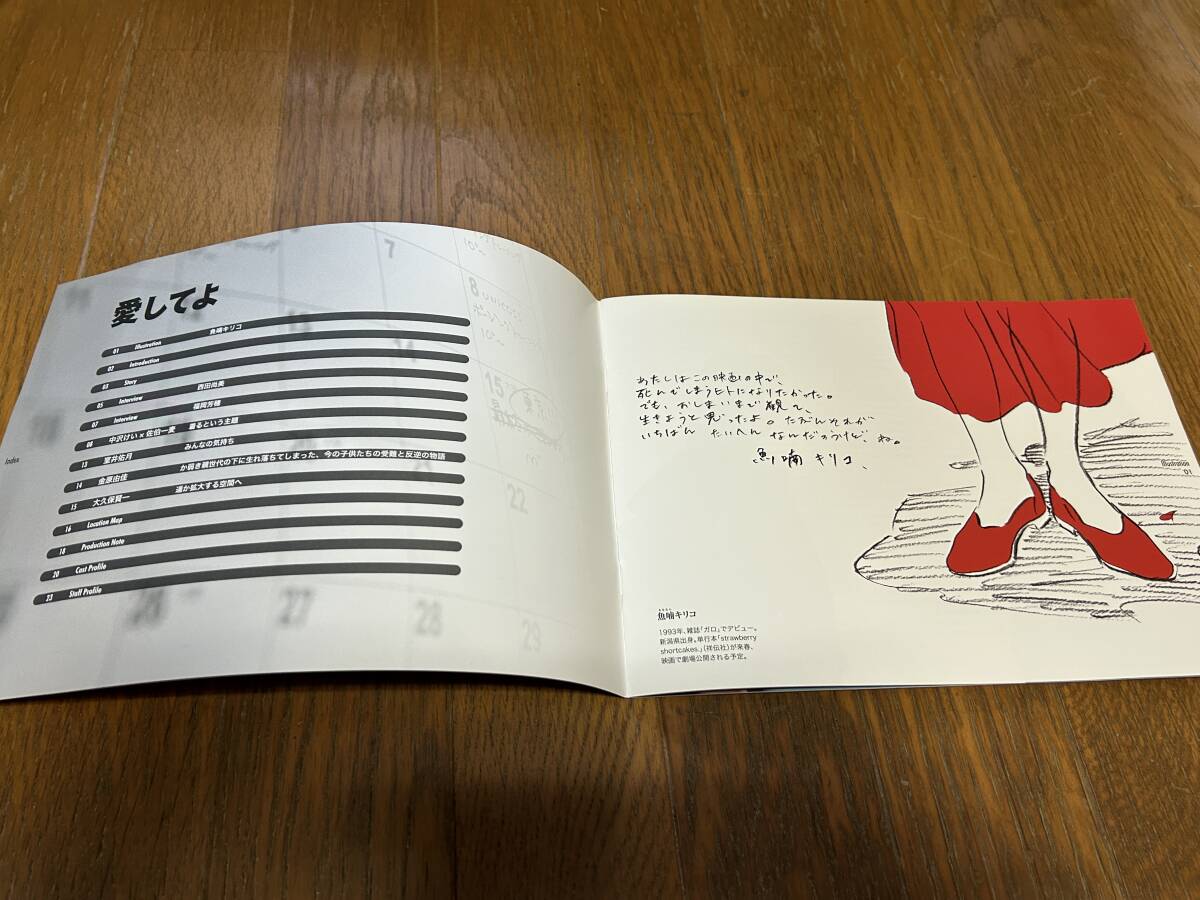 愛してよ
Index
01 Illustration 魚喃キリコ
02 Introduction
03 Story
05 Interview 西田尚美
07 Interview 福岡芳穂
08 中沢けい×佐伯一麦 蘇るという主題
13 室井佑月 みんなの気持ち
14 金原由佳 か弱き親世代の下に生れ落ちてしまった、今の子供たちの受難と反逆の物語
15 大久保賢一 遥か拡大する空間へ
16 Location Map
18 Production Note
20 Cast Profile
23 Staff Profile
7
10:~
8
10:~
14
15
東京
22
26
27
28
29
あたしはこの映画の中で、
死んでしまうヒトになりたかった。
でも、おしまいまで観て、
生きようと思ったよ。たぶんそれが
いちばん たいへん なんだろうけど、ね。
魚喃キリコ、
Illustration
01
魚喃キリコ
1993年、雑誌「ガロ」でデビュー。
新潟県出身。単行本「strawberry
shortcakes.」(祥伝社)が来春、
映画で劇場公開される予定。